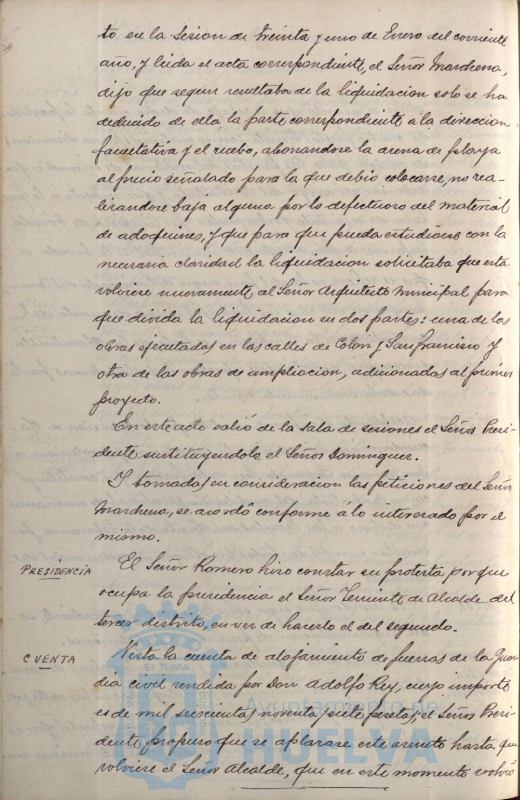 to en la Sesion de treinta y uno de Enero del corriente
año, y leida el acta correspondiente, el Señor Marchena,
dijo que segun resultaba de la liquidacion solo se ha
deducido de ella la parte correspondiente á la direccion
facultativa y el recebo, abonandose la arena de playa
al precio señalado para la que debió colocarse, no rea-
lizandose baja alguna por lo defectuoso del material
de adoquines, y que para que pueda estudiarse con la
necesaria claridad la liquidacion solicitaba que esta
volviese nuevamente al Señor Arquitecto Municipal para
que divida la liquidacion en dos partes: una de las
obras ejecutadas en las calles de Colon y San Francisco y
otra de las obras de ampliacion, adicionadas al primer
proyecto.
En este acto salió de la Sala de sesiones el Señor Presi-
dente sustituyendole el Señor Dominguez.
Y tomadas en consideracion las peticiones del Señor
Marchena, se acordó conforme á lo interesado por el
mismo.
PRESIDENCIA
El Señor Romero hizo constar su protesta por que
ocupa la presidencia el Señor Teniente de Alcalde del
tercer distrito, en vez de hacerlo el del segundo.
CUENTA
Vista la cuenta de alojamiento de fuerzas de la Guar-
dia civil rendida por Don Adolfo Rey, cuyo importe
es de mil seiscientas noventa y siete pesetas, el Señor Presi-
dente propuso que se aplazase este asunto hasta que
volviese el Señor Alcalde, que en este momento volvió
Ayuntamiento de
HUELVA